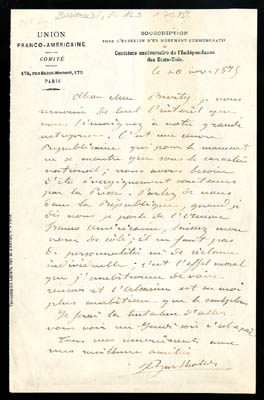 UNION
FRANCO-AMÉRICAINE
COMITÉ
175, RUE SAINT-HONORÉ, 175
PARIS
SOUSCRIPTION
POUR L'ÉRECTION D'UN MONUMENT COMMÉMORATIF
DU
Centième anniversaire de l'Indépendance
des États-Unis.
le 20 nov 1875
Mon cher je vous
remercie de tout l'intérêt que
vous témoignez à notre grande
entreprise. C'est une œuvre
Républicaine qui pour le moment
ne se montre que sous le caractère
national; nous avons besoin
d'être énergiquement soutenus
par la Presse. Parlez de nous
dans la République, quand je
dis nous je parle de l'Union
Franco Américaine, laissez mon
nom de côté; il ne faut pas
de personnalité ni de réclame
individuelle; c'est l'effet moral
que j'ambitionne de voir
réussir et l'Alsacien est en moi
plus ambitieux que le sculpteur
Je ferai la tentative d'aller
vous voir
Tous mes remerciements avec
mes meilleures amitiés
Bartholdi